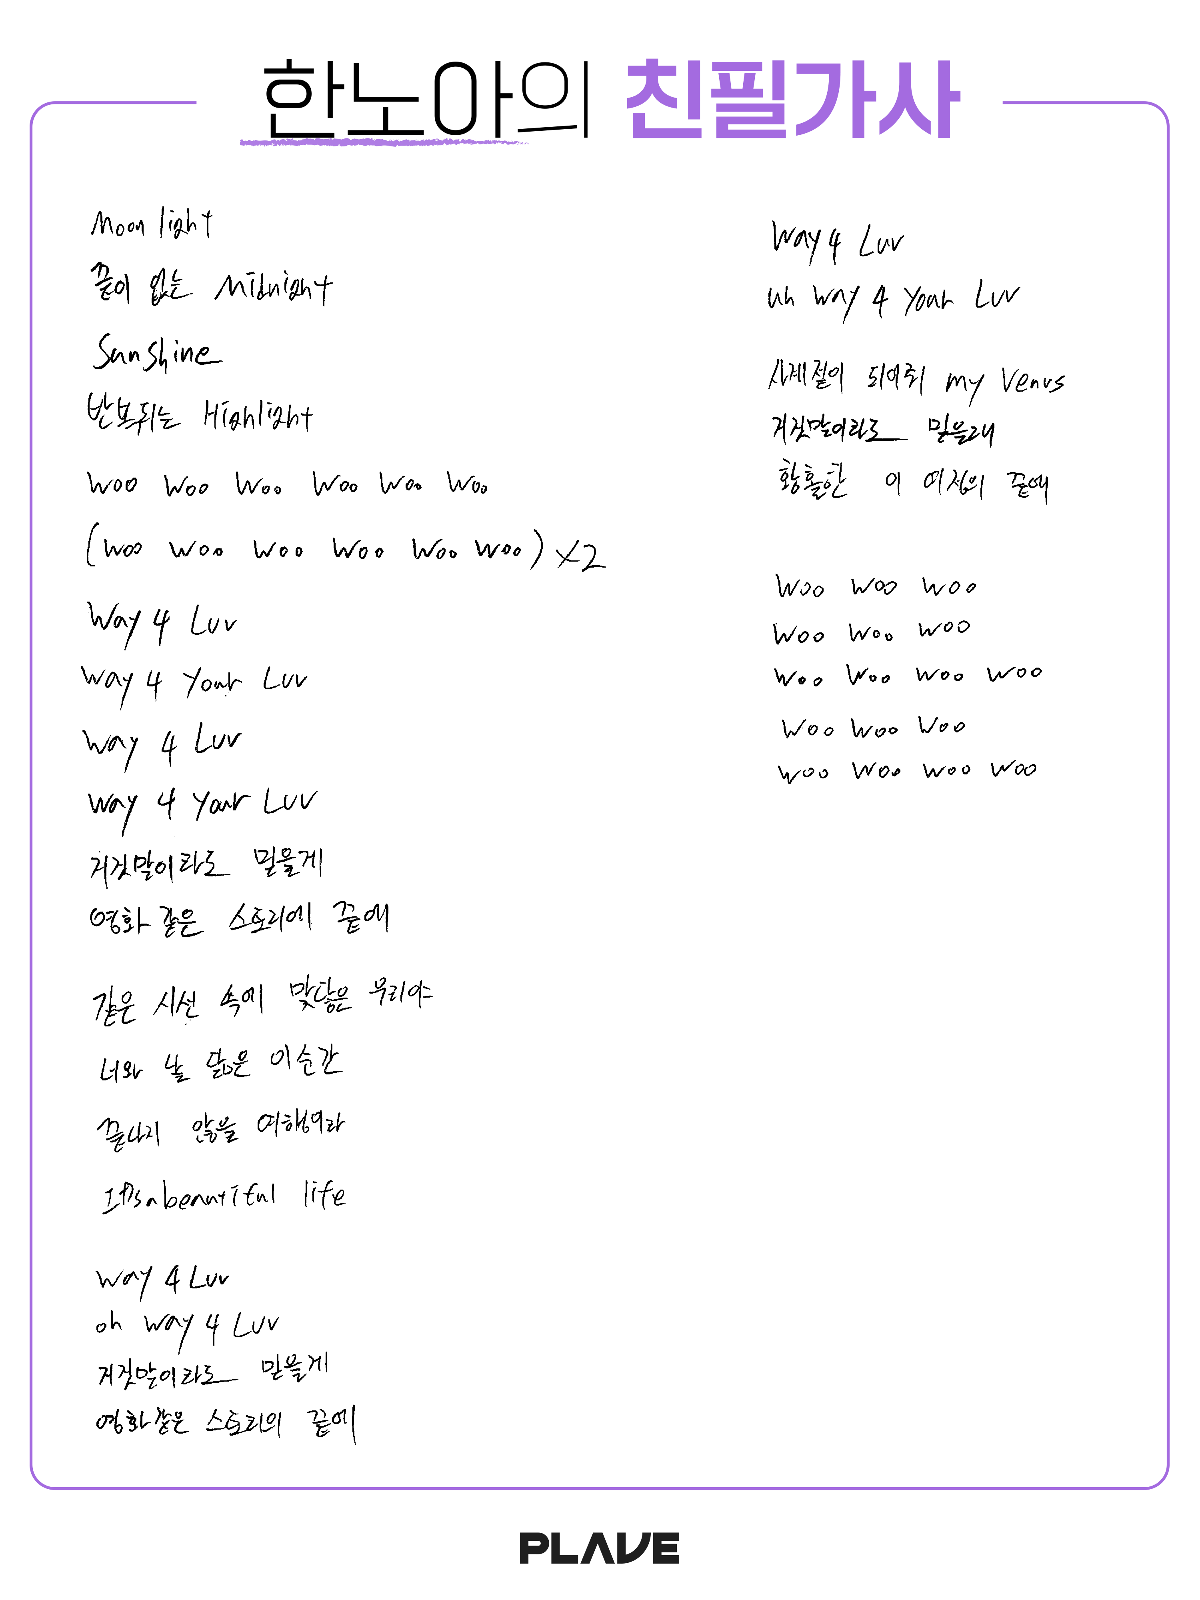 한노아의 친필가사
Moon light
끝이 없는 Midnight
Sunshine
반복되는 Highlight
woo woo woo woo woo woo
(woo woo woo woo woo woo) x2
Way 4 Luv
Way 4 Your Luv
Way 4 Luv
Way 4 Your Luv
거짓말이라도 믿을게
영화 같은 스토리에 끝에
같은 시선 속에 맞닿은 우리야
너와 날 닮은 이순간
끝나지 않을 여행이라
It's a beautiful life
Way 4 Luv
oh Way 4 Luv
거짓말이라도 믿을게
영화같은 스토리의 끝에
Way 4 Luv
uh Way 4 Your Luv
사계절이 되어줘 my Venus
거짓말이라도 믿을래
황홀한 이 여정의 끝에
woo woo woo
woo woo woo
woo woo woo woo
woo woo woo
woo woo woo woo
PLAVE